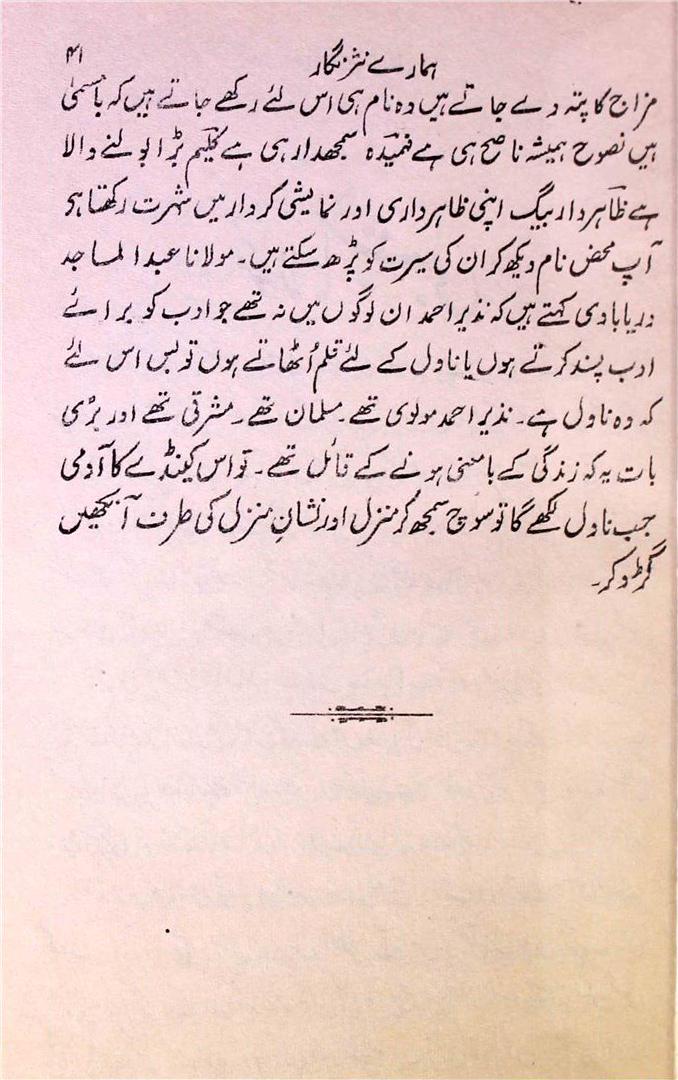 ہمارے نثر نگار ۴۱
مزاج کا پتہ دے جاتے ہیں وہ نام ہی اس لئے رکھے جاتے ہیں کہ با مسمیٰ
ہیں نصوح ہمیشہ ناصح ہی ہے فہمیدہ سمجھدار ہی ہے کلیم بڑا بولنے والا
ہے ظاہردار بیگ اپنی ظاہرداری اور نمایشی کردار میں شہرت رکھتا ہی
آپ محض نام دیکھ کر ان کی سیرت کو پڑھ سکتے ہیں۔ مولانا عبدالماجد
دریابادی کہتے ہیں کہ نذیر احمد ان لوگوں میں نہ تھے جو ادب کو برائے
ادب پسند کرتے ہوں یا ناول کے لئے قلم اُٹھاتے ہوں تو بس اس لئے
کہ وہ ناول ہے۔ نذیر احمد مولوی تھے۔ مسلمان تھے۔ مشرقی تھے اور بڑی
بات یہ کہ زندگی کے بامعنی ہونے کے قائل تھے۔ تو اس کینڈے کا آدمی
جب ناول لکھے گا تو سوچ سمجھ کر منزل اور نشانِ منزل کی طرف آنکھیں
گڑو کر۔